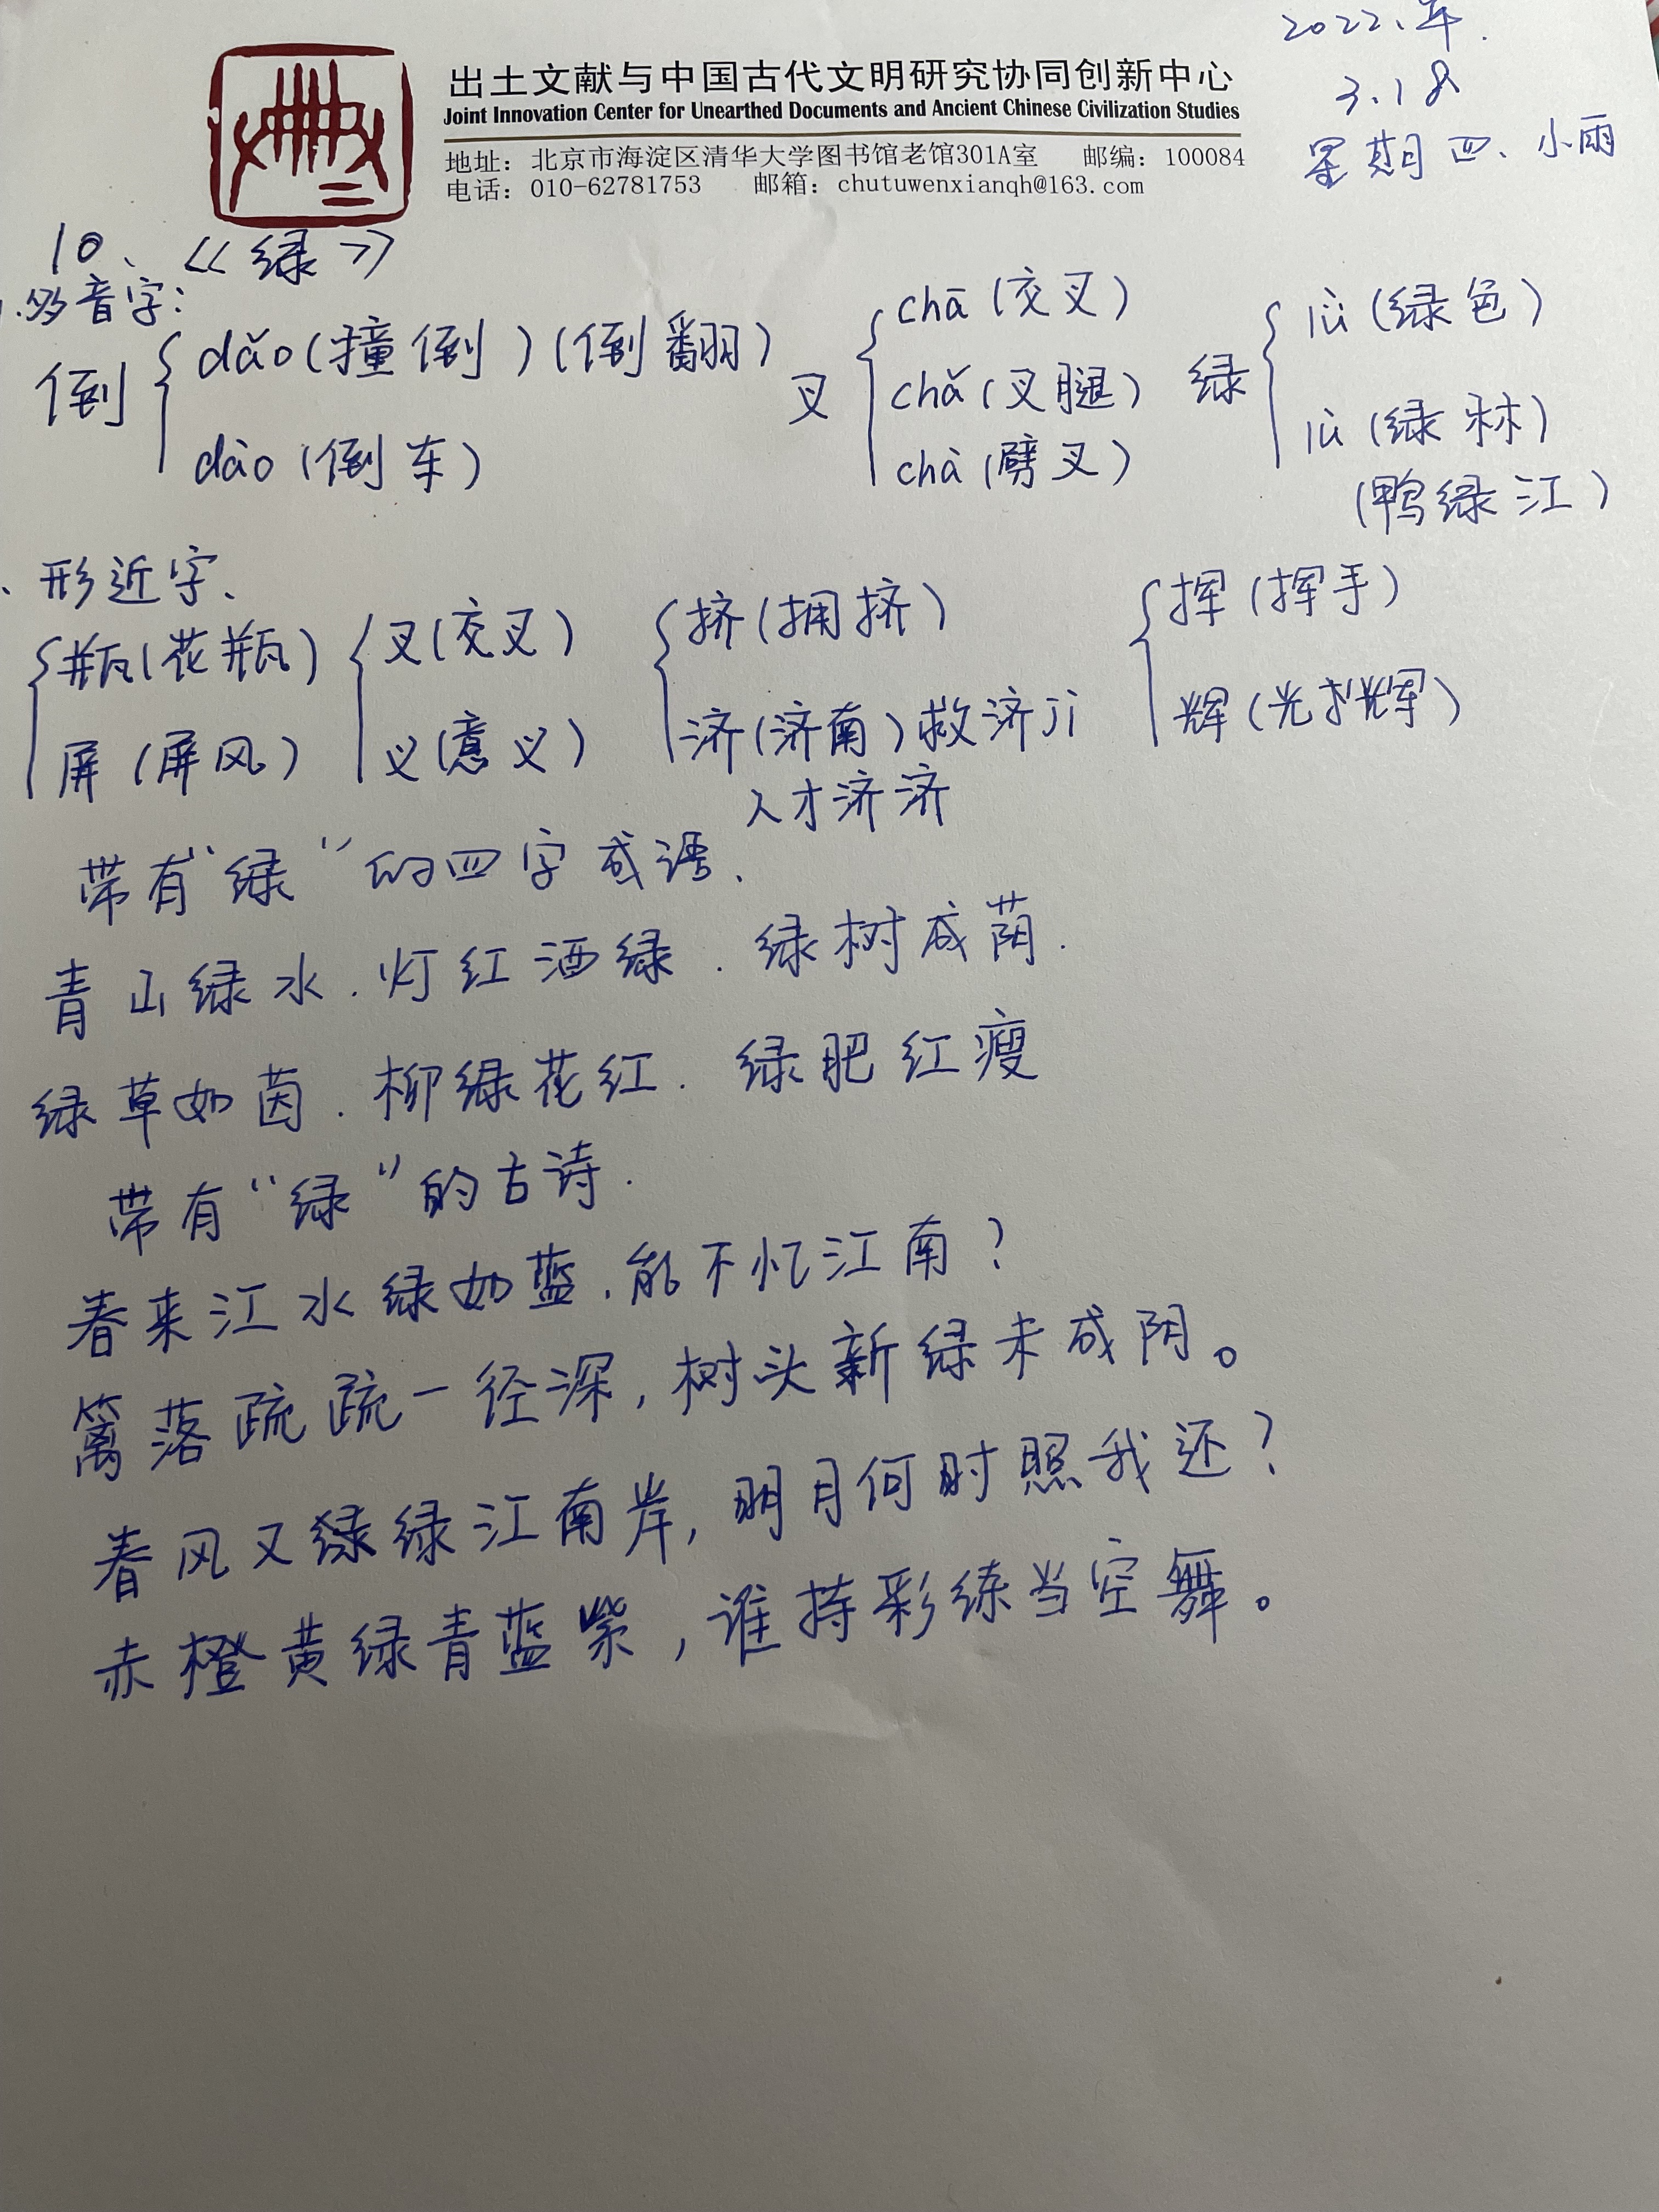 2022.年.
3.18
星期四、小雨
出土文献与中国古代文明研究协同创新中心
Joint Innovation Center for Unearthed Documents and Ancient Chinese Civilization Studies
地址：北京市海淀区清华大学图书馆老馆301A室 邮编：100084
电话：010-62781753 邮箱：chutuwenxianqh@163.com
10、《绿》
1.多音字：
倒 { dǎo(撞倒)(倒翻)
dào(倒车)
叉 { chā(交叉)
chǎ(叉腿)
chà(劈叉)
绿 { lǜ(绿色)
lù(绿林)
(鸭绿江)
、形近字、
{ 瓶(花瓶)
屏(屏风)
{ 叉(交叉)
义(意义)
{ 挤(拥挤)
济(济南)救济jì
人才济济
{ 挥(挥手)
辉(光辉)
带有“绿”的四字成语、
青山绿水.灯红酒绿.绿树成荫.
绿草如茵.柳绿花红.绿肥红瘦
带有“绿”的古诗.
春来江水绿如蓝.能不忆江南？
篱落疏疏一径深，树头新绿未成阴。
春风又绿绿江南岸，明月何时照我还？
赤橙黄绿青蓝紫，谁持彩练当空舞。